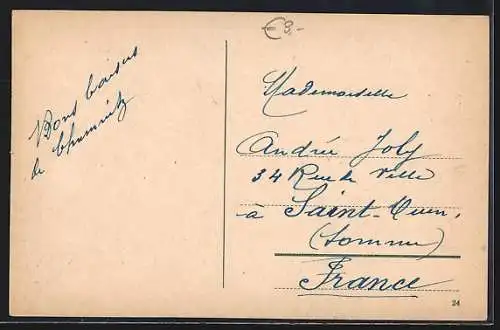 €9,-
Bons baisers
de Chemnitz
Mademoiselle
Andrée Joly
34 Rue de Ville
à Saint-Ouen,
(Somme)
France
24